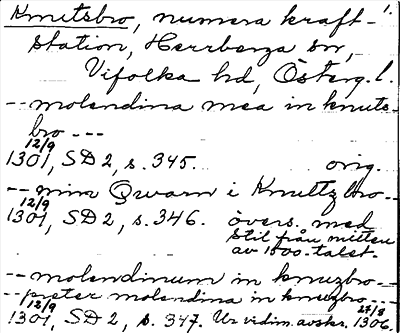 Knutsbro, numera kraft- 1.
station, Herrberga sn,
Vifolka hd, Österg. l.
-- molendina mea in knuts-
bro ---
12/9
1301, SD 2, s. 345. orig.
-- min Qwarn i Knuttzbro --
12/9
1301, SD 2, s. 346. övers. med
stil från mitten
av 1500-talet.
-- molendinum in knuzbro ---
-- preter molendina in knuzbro ---
12/9 27/8
1301, SD 2, s. 347. Ur vidim. avskr. 1306.